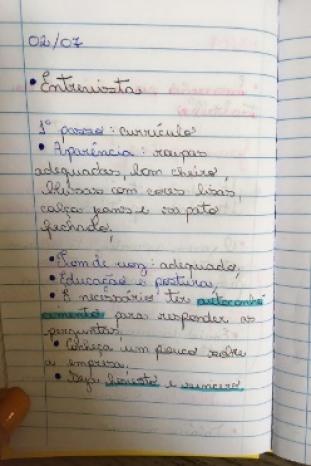 02/07
• Entrevista
1º passo: currículo
• Aparência: roupas
adequadas, bom cheiro,
blusas com cores lisas,
calça jeans e sapato
fechado;
• Tom de voz: adequado;
• Educação e postura;
• É necessário ter autoconhe
cimento para responder as
perguntas;
• Conheça um pouco sobre
a empresa;
• Seja honesto e sincero